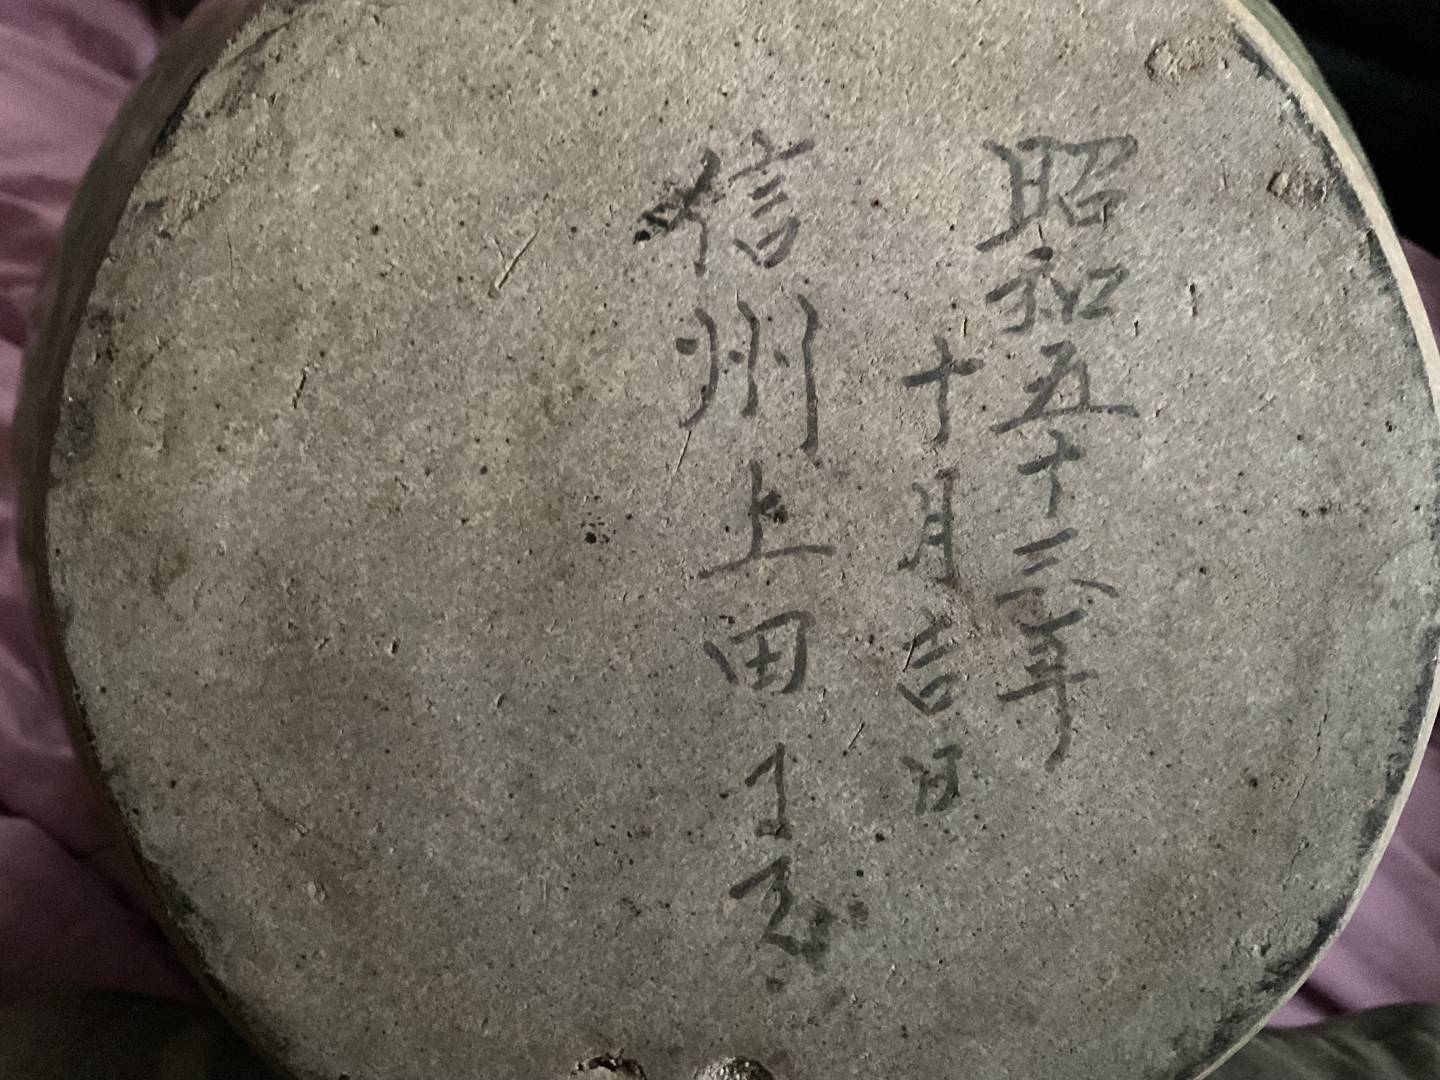 昭和五十三年
十月吉日
信州上田